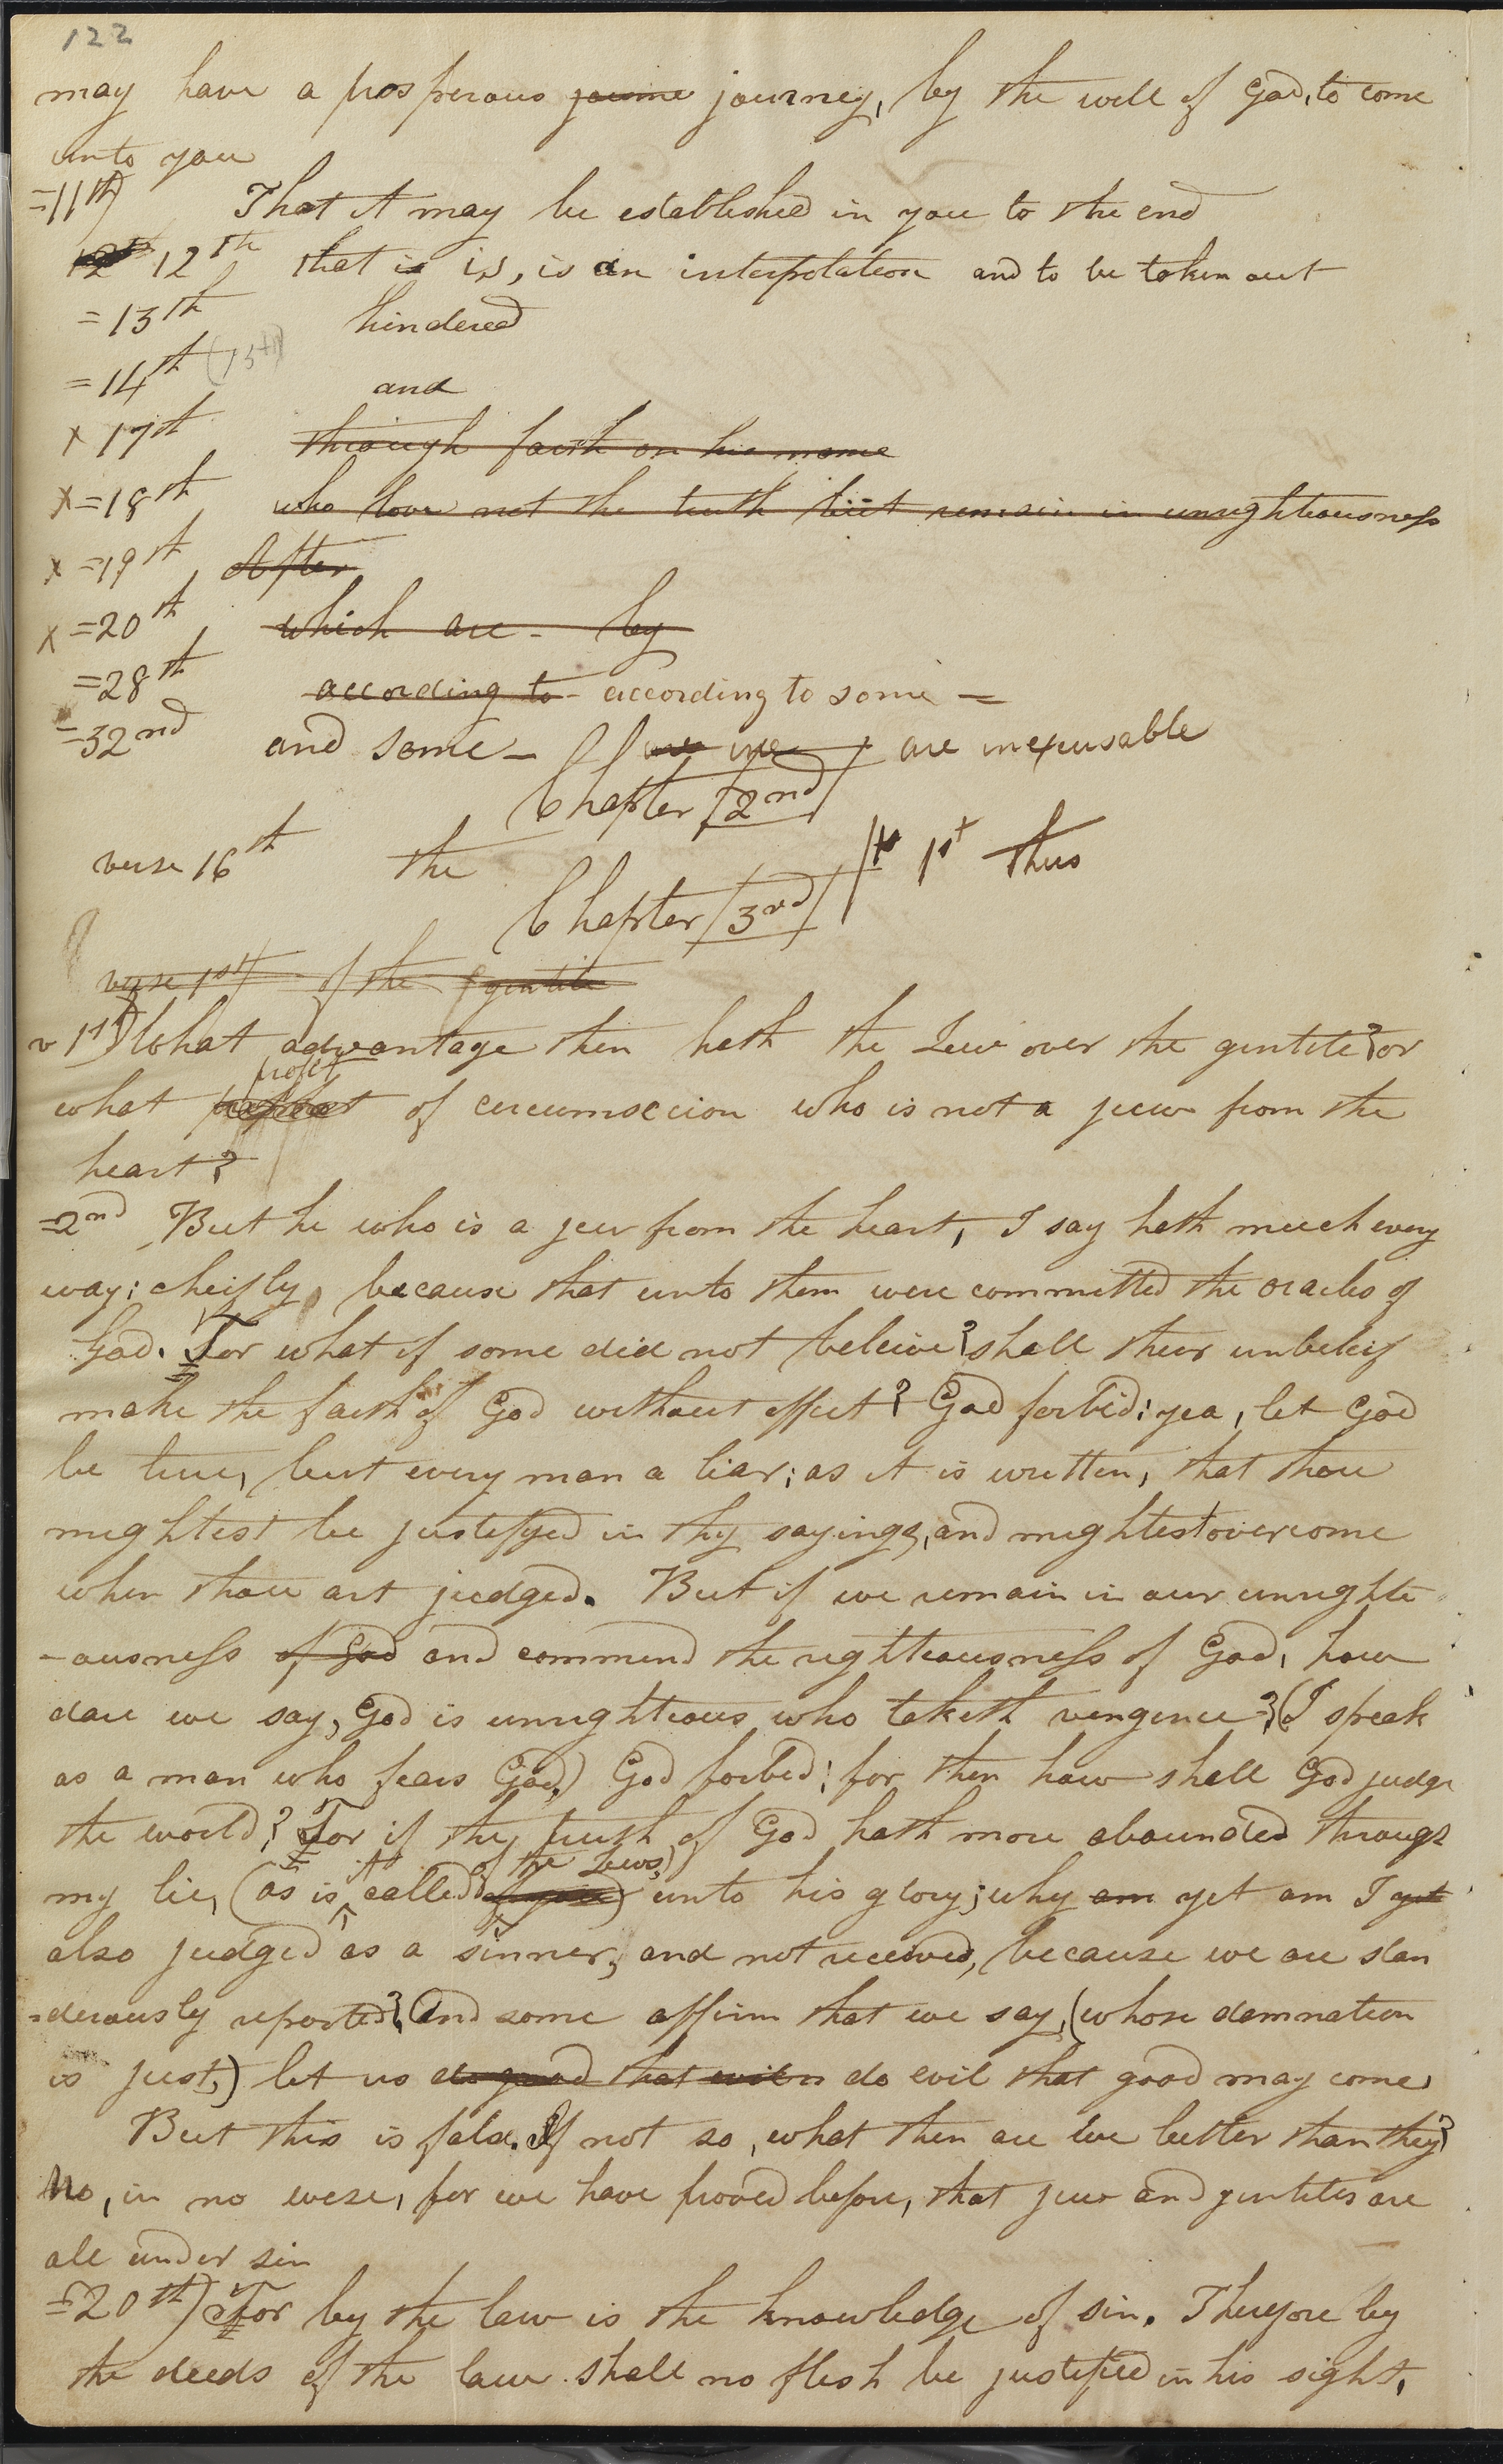 122
may have a prosperous journe journey, by the will of God, to come
unto you
=11th) That it may be established in you to the end
12th 12th that is is, is an interpolation and to be taken out
=13th hindered
=14th (15th)
and
x 17th through faith on his name
x =18th who love not the truth but remain in unrighteousness
x =19th After
x =20th which are - by
=28th according to - according to some =
=32nd and some - are inexcusable
Chapter /2nd/
verse 16th the
1st thus
Chapter /3rd/
verse 1st of the gentile
v 1st) What advantage then hath the Jew over the gentile? or
profit
what of circumscion who is not a jew from the
heart?
=2nd But he who is a jew from the heart, I say hath much every
way; cheifly, because that unto them were committed the oracles of
God. For what if some did not beleive? shall their unbeleif
make the faith of God without effect? God forbid: yea, let God
be true, but every man a liar; as it is written, that thou
mightest be justifyed in thy sayings, and mightest overcome
when thou art judged. But if we remain in our unrighte
-ousness of God and commend the righteousness of God, how
dare we say, God is unrighteous who taketh vengence? (I speak
as a man who fears God,) God forbid: for then how shall God judge
the world? For if the truth of God hath more abounded through
it of the Jews,)
my lie, (as is called unto his glory; why am yet am I yet
also judged as a sinner, and not received, because we are slan
=derously reported? And some affirm that we say, (whose damnation
is just,) let us do good that evil do evil that good may come.
But this is false. If not so, what then are we better than they?
No, in no wese, for we have proved before, that jew and gentiles are
all under sin
=20th) For by the law is the knowledge of sin. Therefore by
the deeds of the law shall no flesh be justified in his sight.